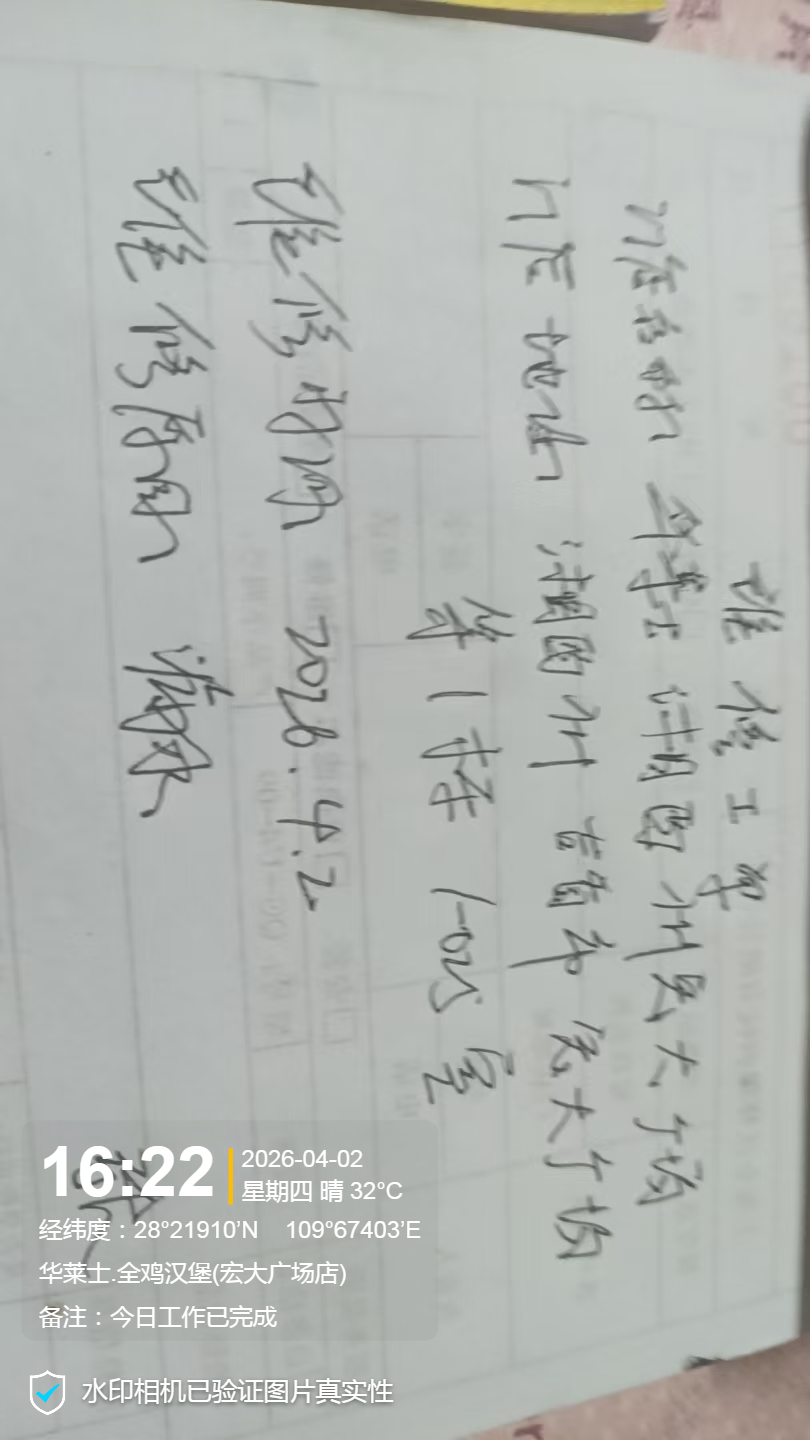 维修工单
门店名称 华莱士 湖南湘州宏大广场
门店地址 湖南湘州吉首市宏大广场
第1栋 102室
维修时间 2026.4.2
维修原因 漏水
16:22
2026-04-02
星期四 晴 32°C
经纬度：28°21910’N 109°67403’E
华莱士.全鸡汉堡(宏大广场店)
备注：今日工作已完成
水印相机已验证图片真实性